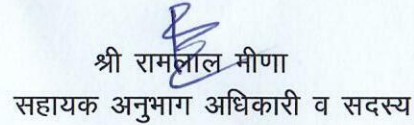 श्री रामलाल मीणा
सहायक अनुभाग अधिकारी व सदस्य